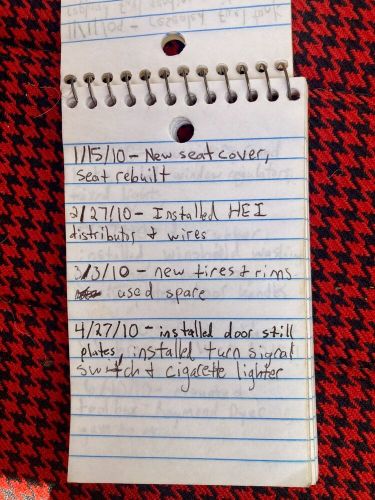 1/15/10 - New seat cover,
seat rebuilt
2/27/10 - Installed HEI
distributor + wires
3/3/10 - new tires + rims
used spare
4/27/10 - installed door still
plates, installed turn signal
switch + cigarette lighter